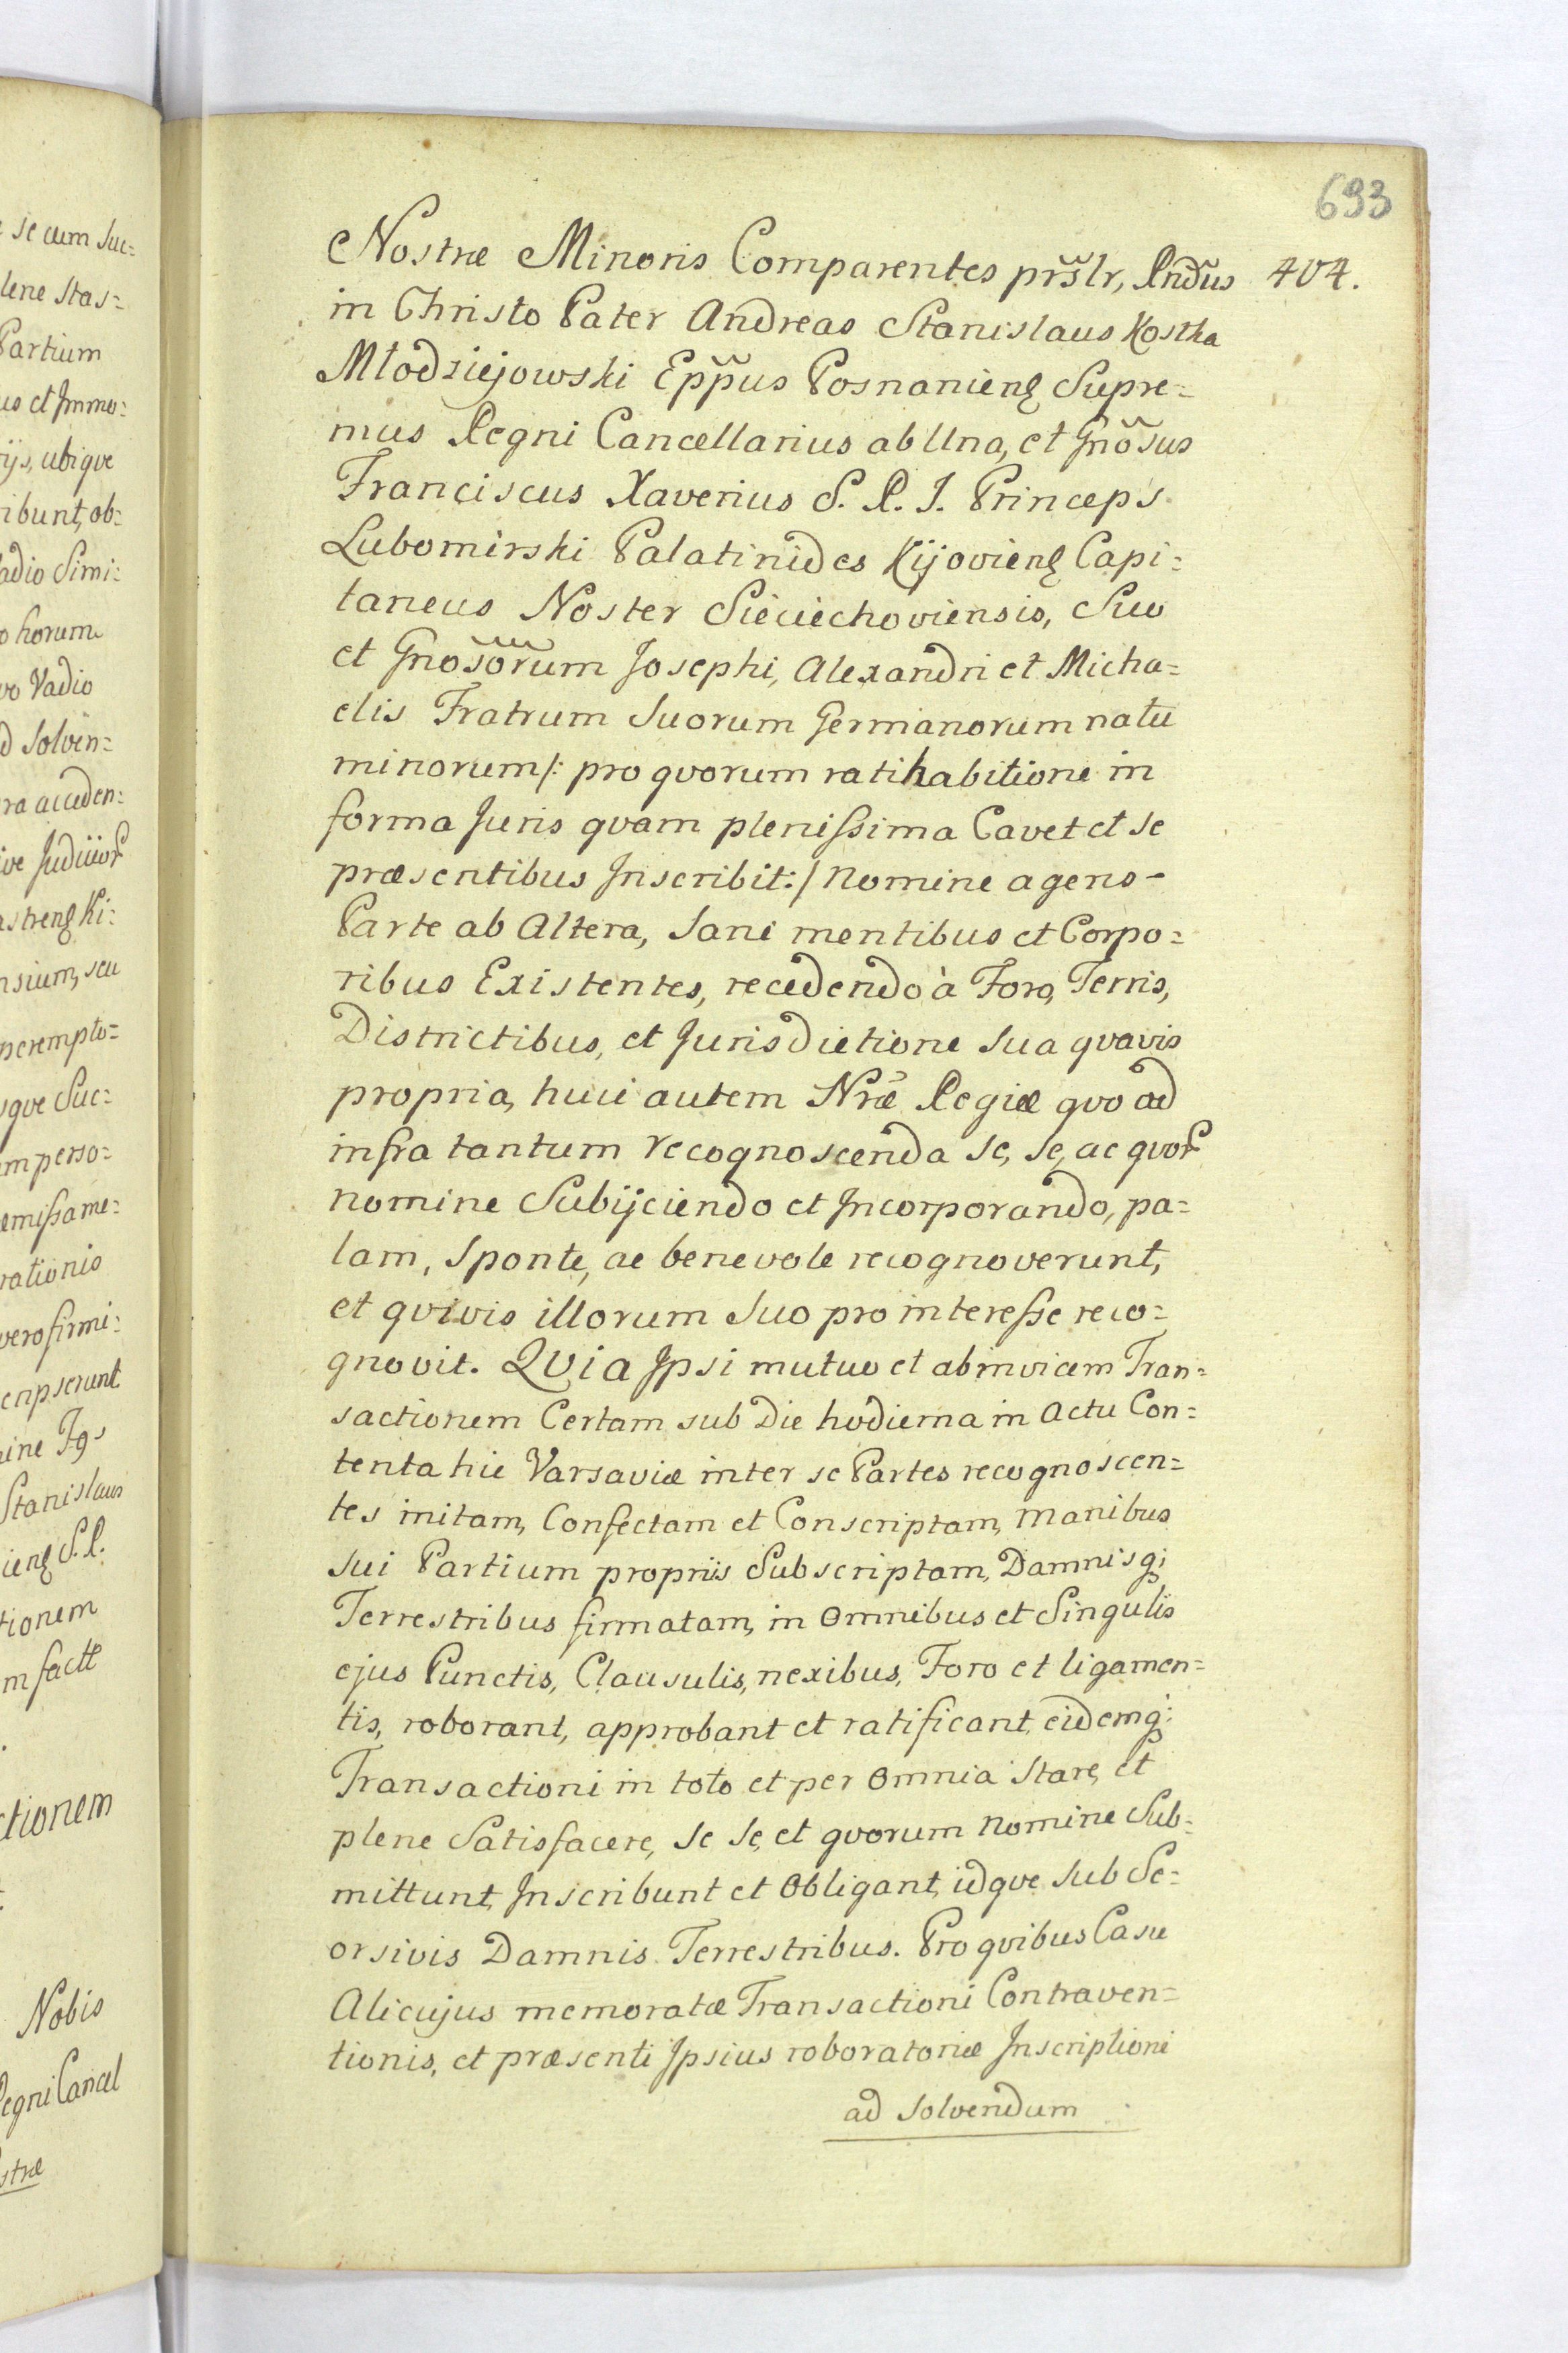 693
404.
Nostræ Minoris Comparentes prs̃lr, Rnd̃us
in Christo Pater Andreas Stanislaus Kostka
Młodziejowski Epp̃us Posnanień Supre=
mus Regni Cancellarius ab Una, et Gnõsus
Franciscus Xaverius S. R. J. Princeps
Lubomirski Palatinides Kijovień Capi=
taneus Noster Sieciechoviensis, Suo
et Gnõsorum Josephi, Alexandri et Micha=
elis Fratrum Suorum Germanorum natu
minorum /: pro qvorum ratihabitione in
forma Juris qvam plenissima Cavet et se
præsentibus Inscribit :/ Nomine agens –
Parte ab Altera, Sani mentibus et Corpo=
ribus Existentes, recedendo à Foro, Terris,
Districtibus, et Jurisdictione Sua qvavis
propria, huic autem Nræ̃ Regiæ qvo ad
infra tantum recognoscenda se, se, ac qvor
nomine Subijciendo et Incorporando, pa=
lam, Sponte, ac benevole recognoverunt,
et qvivis illorum Suo pro interesse reco=
gnovit. QVia Ipsi mutuo et abinvicem Tran=
sactionem Certam sub Die hodierna in Actu Con=
tenta hic Varsaviæ inter se Partes recognoscen=
tes initam, Confectam et Conscriptam, manibus
Sui Partium propriis Subscriptam, Damnisq;
Terrestribus firmatam, in Omnibus et Singulis
ejus Punctis, Clausulis, nexibus, Foro et ligamen=
tis, roborant, approbant et ratificant, eidemq;
Transactioni in toto et per Omnia Stare, et
plene Satisfacere, Se Se, et qvorum nomine Sub=
mittunt, Inscribunt et Obligant, idqve Sub Se=
orsivis Damnis Terrestribus. Pro qvibus Casu
Alicujus memoratæ Transactioni Contraven=
tionis, et præsenti Ipsius roboratoriæ Inscriptioni
ad Solvendum
se cum Suc=
lene Stas=
Partium
us et Immo=
ijs, ubiqve
ribunt, ob=
adio Simi=
o horum
vo Vadio
d Solven=
ra acceden=
ive Judicior
astreń Ki=
nsium, seu
perempto=
qve Suc=
m perso=
emissa me=
rationis
vero firmi=
cripserunt
Stanislaus
ień S.R.
tionem
m facte
ctionem
Nobis
Regni Cancel
stræ